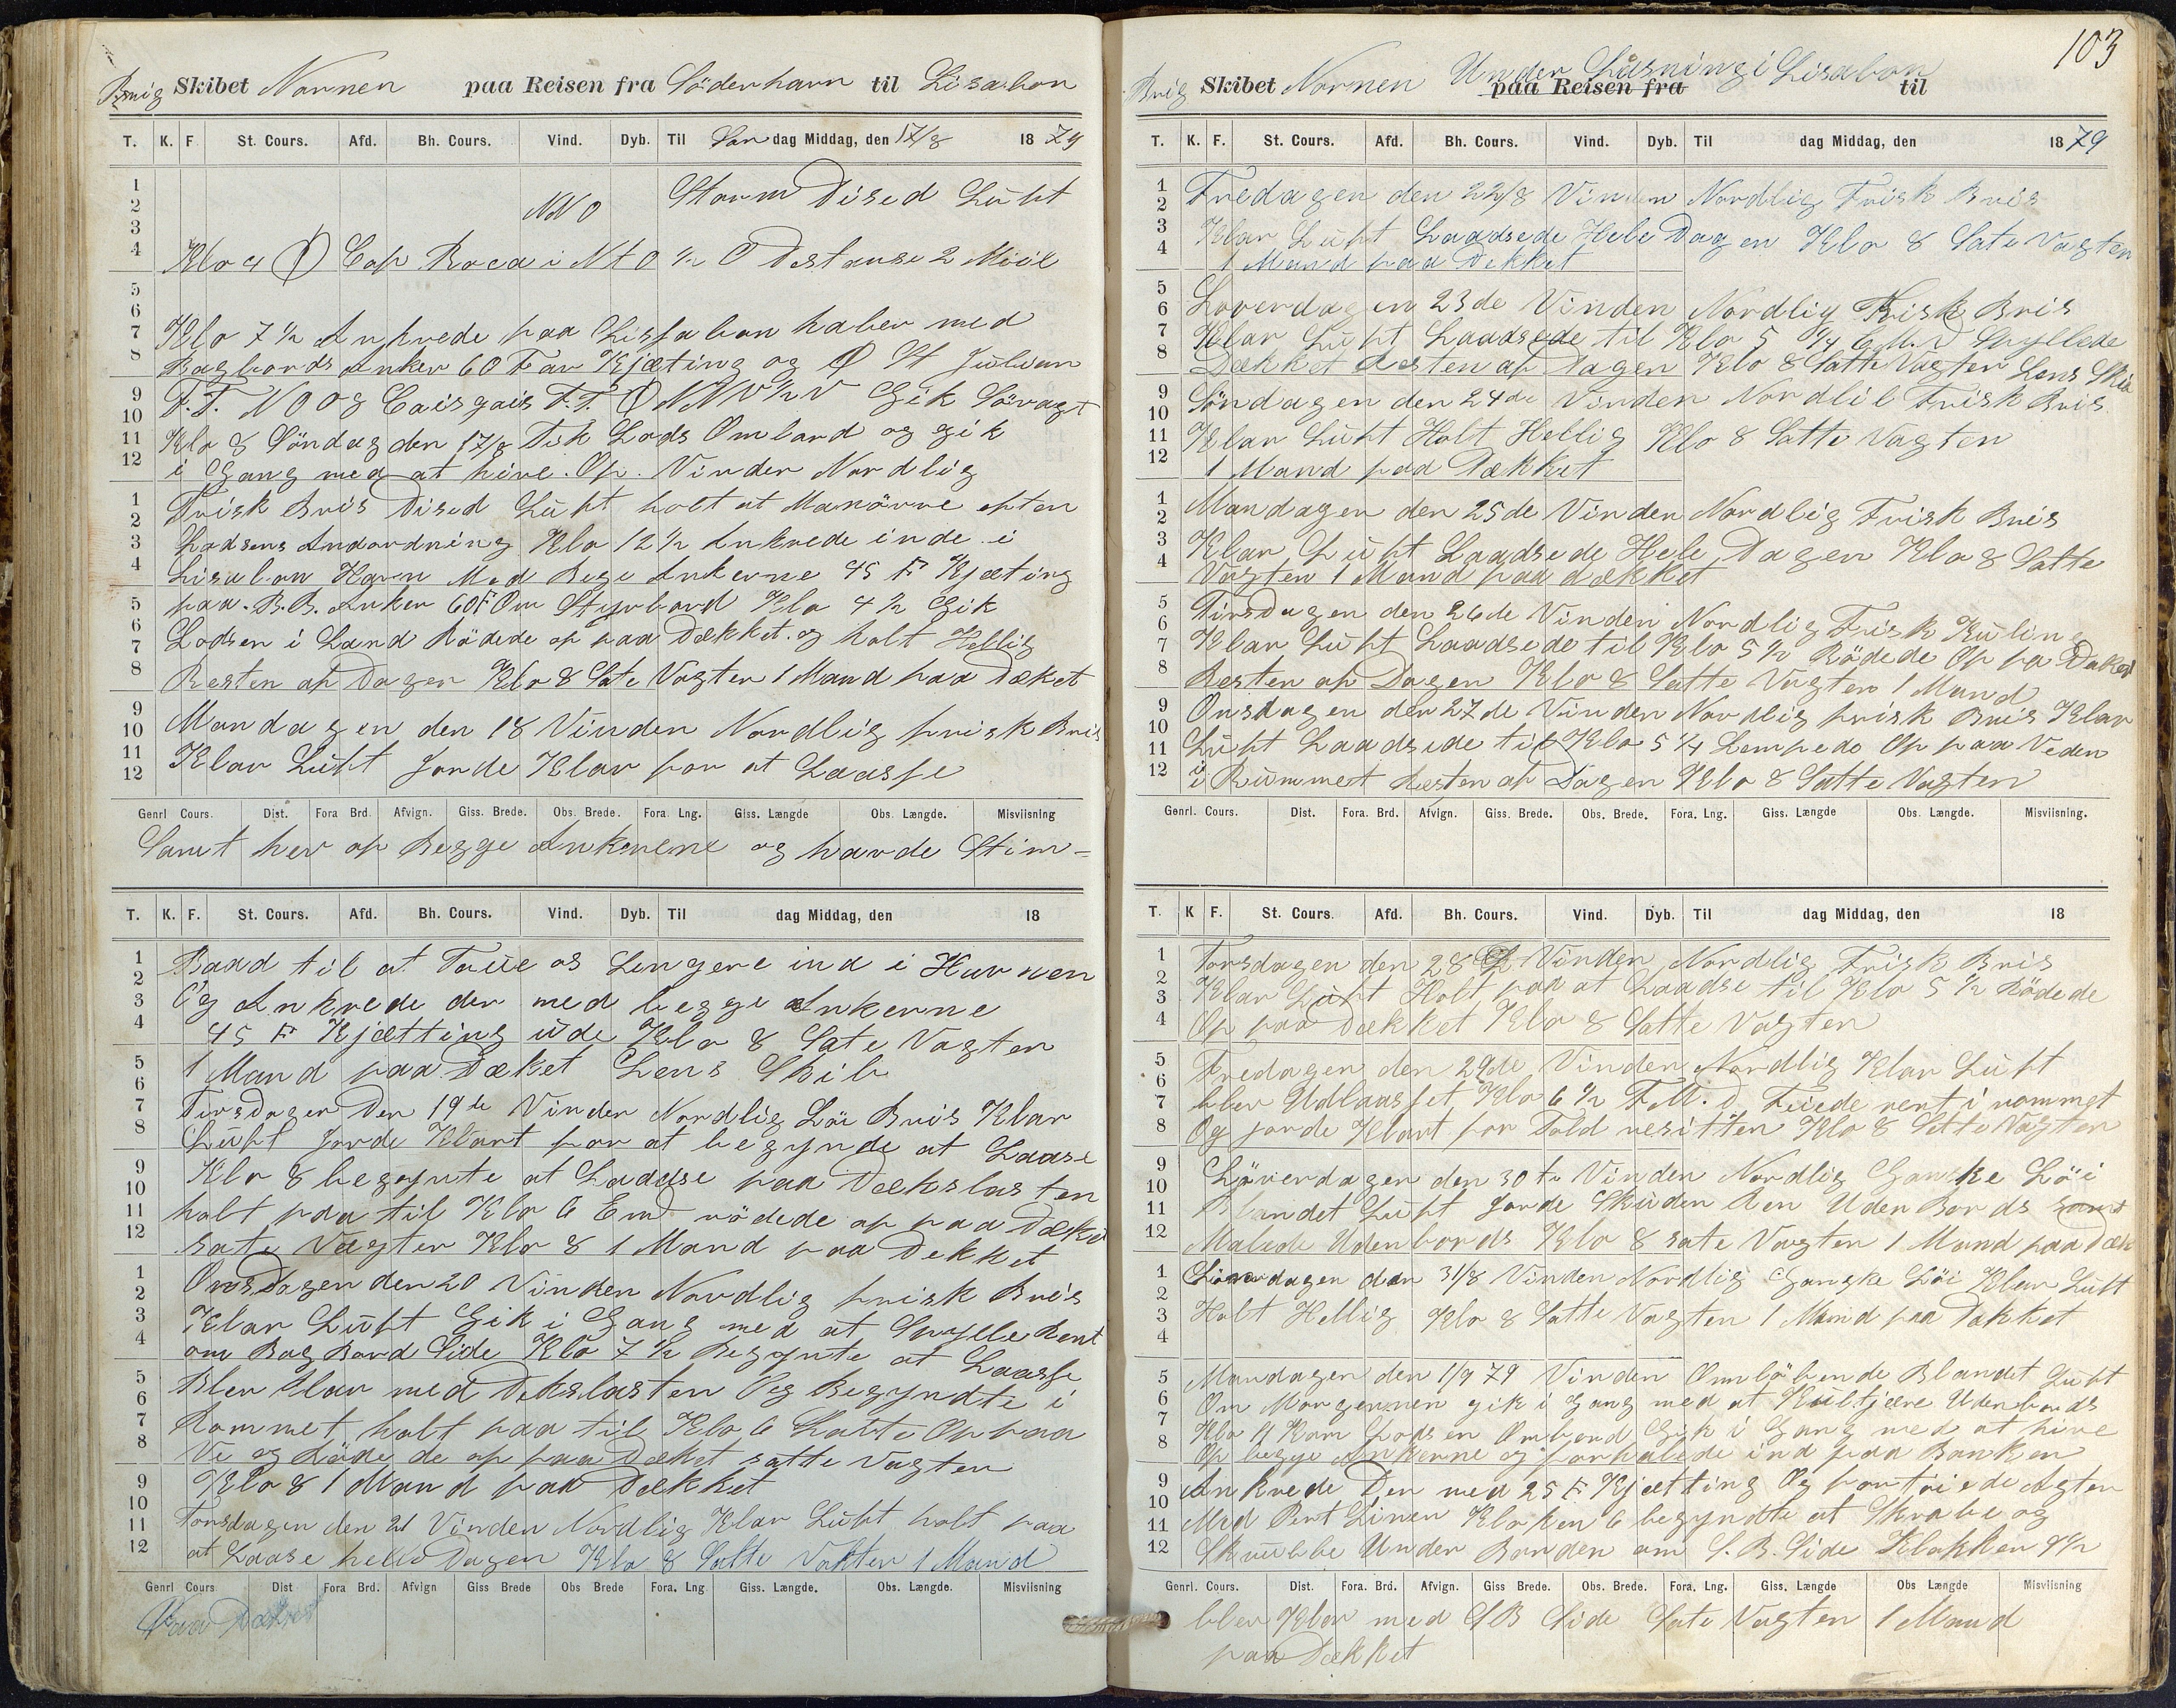 Brig Skibet Nornen paa Reisen fra Söderhavn til Lisabon
T. K. F. St. Cours. Afd. Bh. Cours. Vind. Dyb. Til Søn dag Middag, den 17/8 1879
NNO Storm Diset Luft
Klo 4 Cap Roca i NtO ½ O Distanse 2 Miil
Klo 7½ Ankrede paa Lissabon haber med
Bagbords Anker 60 Fav Kjæting og St Julian
F.T. NO og Caisgais F.T. NNV½V Gik Sövagt
Klo 8 Söndag den 17/8 Fik Lods Ombord og gik
i Gang med at hive Op. Vinden Nordlig
Frisk Bris Dised Luft holt at Manövre efter
Lodsens Andordning Klo 12½ Ankrede inde i
Lisabon Havn Med Bege Ankerne 45 F Kjæting
paa B.B. Anker 60F Om Styrbord Klo 4½ Gik
Lodsen i Land Rödede op paa Dækket og holt Hellig
Resten af Dagen Klo 8 Sate Vagten 1 Mand paa Dæket
Mandagen den 18 Vinden Nordlig frisk Bris
Klar Luft Jorde Klar for at Laasse
Genrl Cours. Dist. Fora Brd. Afvign. Giss. Brede. Obs. Brede. Fora. Lng. Giss. Længde Obs. Længde. Misviisning
Samt hev op Begge Ankerene og havde Stim-
T. K. F. St. Cours. Afd. Bh. Cours. Vind. Dyb. Til dag Middag, den 18
Baad til at Taue os Lengere ind i Havnen
Og Ankrede der med begge Ankerne
45 F Kjætting ude Klo 8 Sate Vagten
1 Mand paa Dæket Lens Skib
Tirsdagen Den 19de Vinden Nordlig Löi Bris Klar
Luft Jorde Klart for at begynde at Laase
Klo 8 begynte at Laadse paa Dækslasten
holt paa til Klo 6 Em rödede op paa Dæket
Sate Vagten Klo 8 1 Mand paa Dekket
Onsdagen den 20 Vinden Nordlig frisk Bris
Klar Luft Gik i Gang med at Spylle Rent
om Bag Bord Side Klo 7½ Begynte at Laasse
Blev Klar med Dekslasten Og Begyndte i
Rommet holt paa til Klo 6 Op paa
Ve og Röde de op paa Dæket satte Vagten
Klo 8 1 Mand paa Dækket
Torsdagen den 21 Vinden Nordlig Klar Luft holt paa
at Laase helle Dagen Klo 8 Satte Vakten 1 Mand
Genrl Cours Dist Fora Brd. Afvign Giss Brede Obs Brede Fora. Lng Giss. Længde. Obs. Længde. Misviisning
Paa Dækket
103
Brig Skibet Nornen Under Låsning i Lisabon paa Reisen fra til
T. K. F. St. Cours. Afd. Bh. Cours. Vind. Dyb. Til dag Middag, den 1879
Fredagen den 22/8 Vinden Nordlig Frisk Bris
Klar Luft Laadsede Hele Dagen Klo 8 Sate Vagten
1 Mand paa Dekket
Loverdagen 23de Vinden Nordlig Frisk Bris
Klar Luft Laadsede til Klo 5 Spyllede
Dækket Resten af Dagen Klo 8 Satte Vagten Lens Skib
Söndagen den 24de Vinden Nordlil Frisk Bris
Klar Luft Holt Hellig Klo 8 Satte Vagten
1 Mand paa Dækket
Mandagen den 25de Vinden Nordlig Frisk Bris
Klar Luft Laadsede Hele Dagen Klo 8 Satte
Vagten 1 Mand paa dækket
Tirsdagen den 26de Vinden Nordlig Frisk Kuling
Klar Luft Laadsede til Klo 5½ Rödede Op pa Dæket
Resten af Dagen Klo 8 Satte Vagten 1 Mand
Onsdagen den 27de Vinden Nordlig frisk Bris Klar
Luft Laadsede til Klo 5¼ Lempede Op paa Veden
i Rummet Resten af Dagen Klo 8 Satte Vagten
Genrl. Cours. Dist. Fora. Brd. Afvign. Giss. Brede. Obs. Brede. Fora. Lng. Giss. Længde Obs. Længde. Misviisning.
T. K F. St. Cours. Afd. Bh. Cours. Vind. Dyb. Til dag Middag, den 18
Torsdagen den 28 Vinden Nordlig Frisk Bris
Klar Luft Holt paa at Laadse til Klo 5½ Rödede
Op paa Dækket Klo 8 Satte Vagten
Fredagen den 29de Vinden Nordlig Klar Luft
blev Udlaasset Klo 6½ F.M. Feiede rent i rommet
Og jorde Klart for Told Klo 8 Sette Vagten
Löverdagen den 30te Vinden Nordlig Ganske Löi
Blandet Luft Jorde Skuden Ren Uden Bords samt
Malede Udenbords Klo 8 sate Vagten 1 Mand paa Dæk
dagen den 31/8 Vinden Nordlig Ganske Löi Klar Luft
Holt Hellig Klo 8 Satte Vagten 1 Mand paa Dækket
Mandagen den 1/9 79 Vinden Omlöbende Blandet Luft
Om Morgennen gik i Gang med at Kultjære Udenbords
Klo 11 Kom Lodsen Ombord Gik i Gang med at hive
Op begge Ankerne og forhalede ind paa Banken
Ankrede Der med 25 F Kjætting Og fortöiede Agter
Med Pert Linen Kloken 6 begyndte at Skrabe og
Skrubbe Under Bonden om S.B. Side Klokken 9½
Genrl. Cours. Dist. Fora. Brd. Afvign. Giss Brede. Obs. Brede. Fora. Lng. Giss. Længde Obs Længde Misviisning
blev Klar med SB Side Sate Vagten 1 Mand
paa Dækket